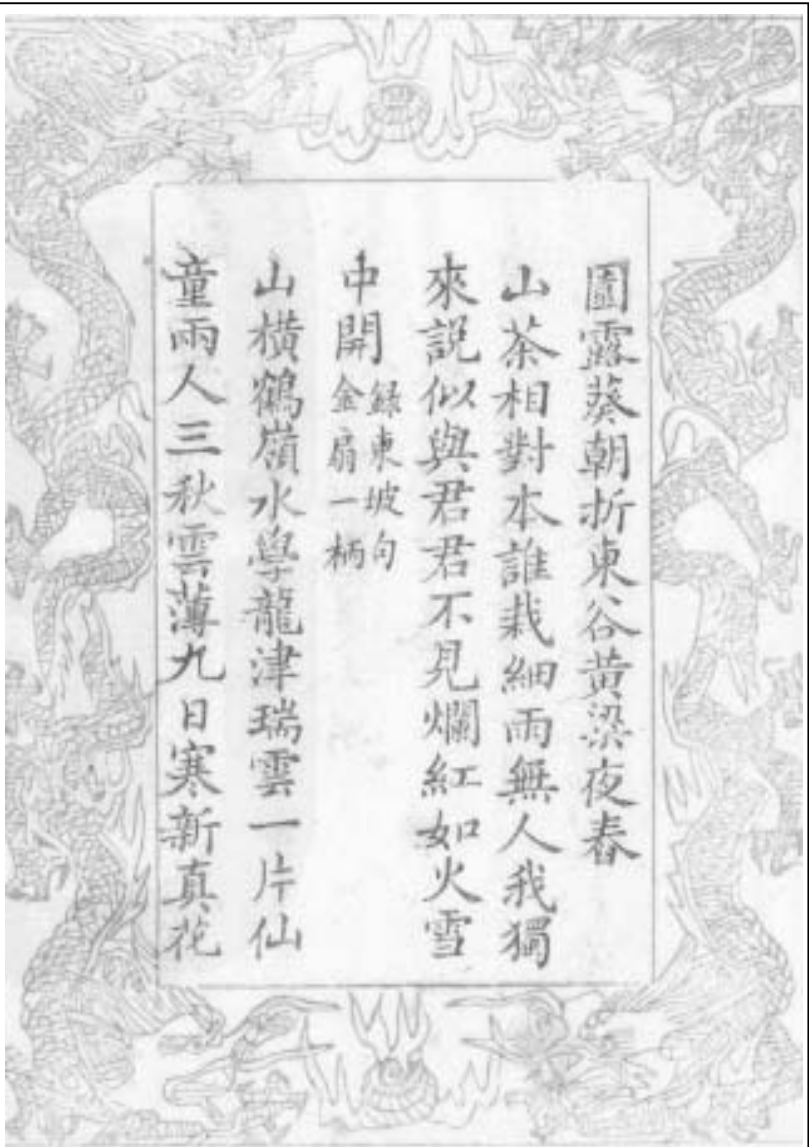 園露葵朝折東谷黄粱夜舂
山茶相對本誰栽細雨無人我獨
來説似與君君不見爛紅如火雪
中開
録東坡句
金扇一柄
山橫鶴嶺水學龍津瑞雲一片仙
童兩人三秋雲薄九日寒新真花